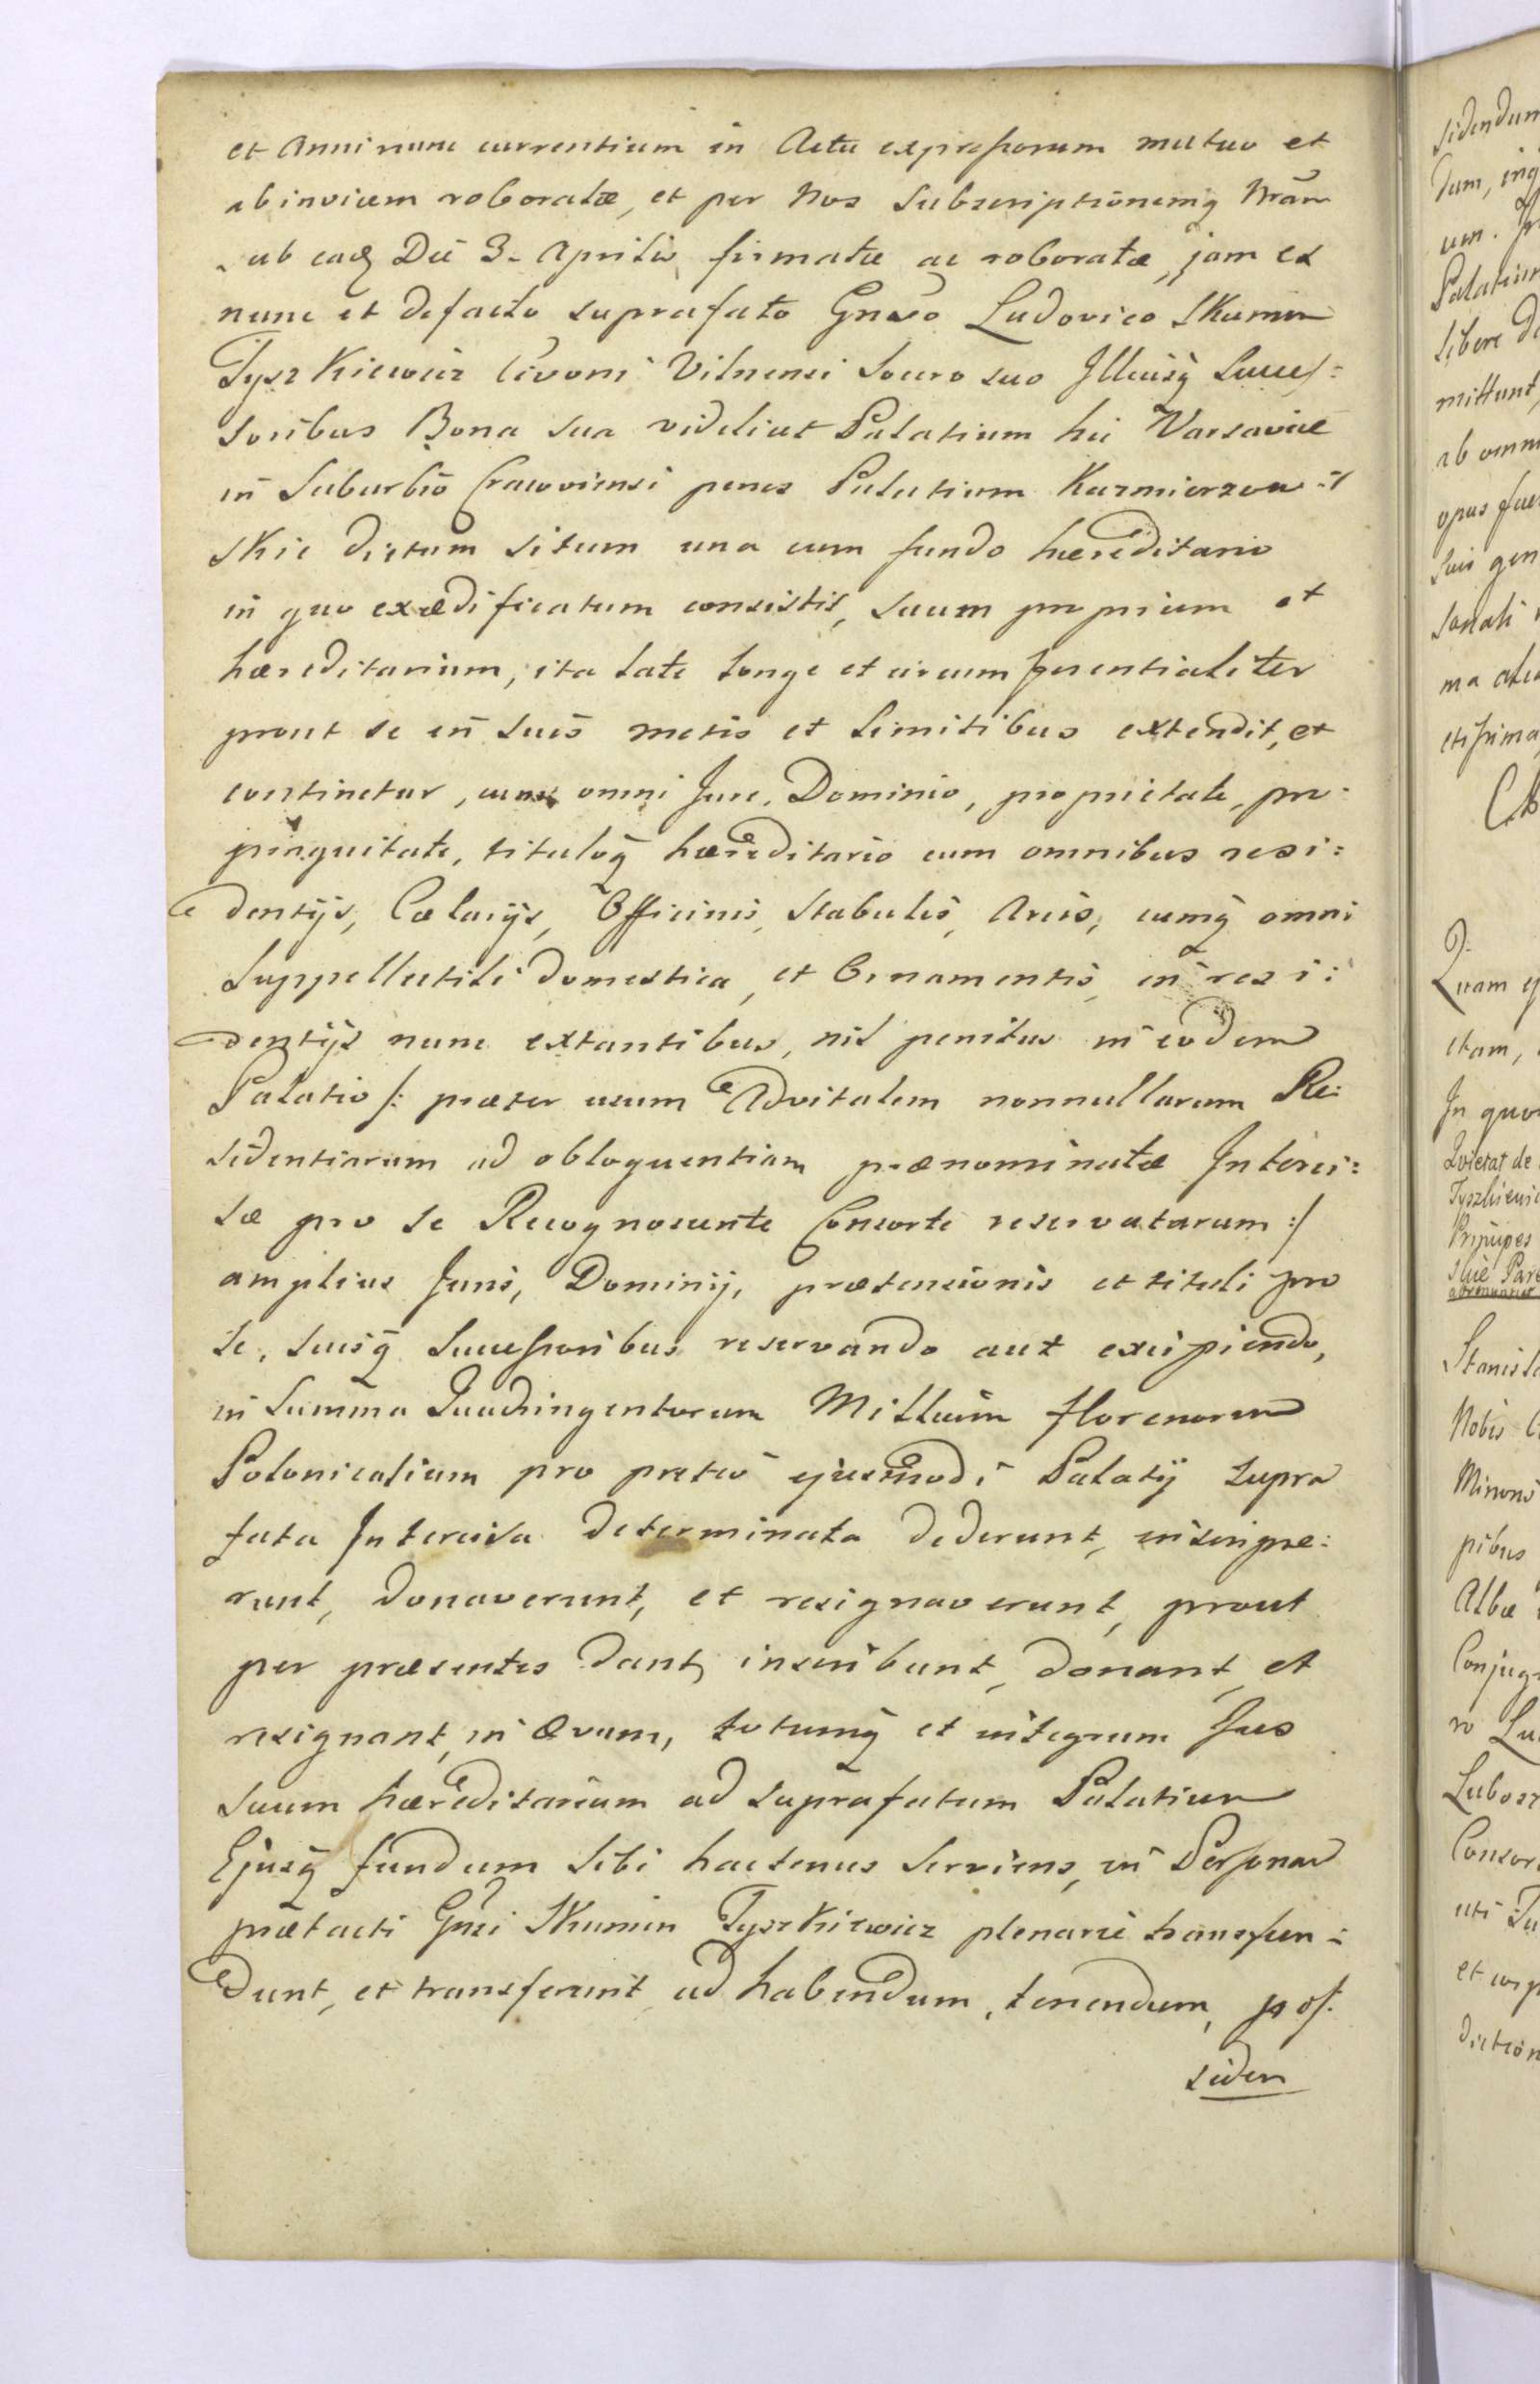 et Anni nunc currentium in Actu expressorum mutuo et
ab invicem roboratæ, et per Nos Subscriptionemq̃ Nrãm
sub eadẽ Die 3. Aprilis firmatæ ac roboratæ, jam ex
nunc et defacto suprafato Gnẽso Ludovico Skumin
Tyszkiewicz Civoni Vilnensi Socero suo Illiusq̃ Succes=
soribus Bona sua videlicet Palatium hic Varsaviæ
in Suburbio Cracoviensi penes Palatium Kazmierzow=
skie dictum situm una cum fundo hæreditario
in quo exædificatum consistit, suum proprium et
hæreditarium, ita late longe et circumferentialiter
prout se in suis metis et limitibus extendit, et
continetur, cum omni Jure, Dominio, proprietate, pro=
pinquitate, tituloq̃ hæreditario cum omnibus resi=
dentijs, Cælarijs, Officinis, Stabulis, Areis, cumq̃ omni
Suppellectili domestica, et Ornamentis, in resi=
dentijs nunc extantibus, nil penitus in eodem
Palatio /: præter usum Advitalem nonnullarum Re=
sidentiarum ad obloquentiam prænominatæ Interci=
sæ pro se Recognoscente Consorte reservatarum :/
amplius Juris, Dominij, prætensionis et tituli pro
se, suisq̃ Successoribus reservando aut excipiendo,
in Summa Quadringentorum Millium florenorum
Polonicalium pro pretio ejusmodi Palatij supra
fata Intercisa determinata dederunt, inscripse=
runt, donaverunt, et resignaverunt, prout
per præsentes dant, inscribunt, donant, et
resignant, in Ævum, totumq̃ et integrum Jus
suum hæreditarium ad suprafatum Palatium
Ejusq̃ fundum sibi hactenus serviens, in Personam
prætacti Gnẽsi Skumin Tyszkiewicz plenarie transfun=
dunt, et transferunt ad habendum, tenendum, pos=
siden
sidendum
dum,
um.
Palatium
libere
mittunt,
ab omni
opus
suis
ma
Quam
etam,
In quo
Quietat de
Stanisla
Nobis
pibus
Albæ
Conjug
ro Lu
Lubos
Consor
uti
et
diction